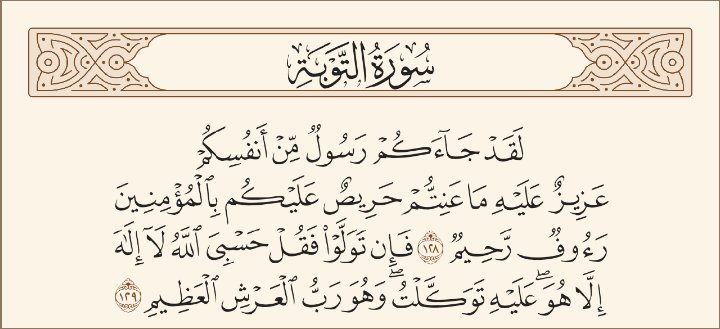 سُورَةُ التَّوْبَةِ
لَقَدْ جَآءَكُمْ رَسُولٌ مِّنْ أَنفُسِكُمْ
عَزِيزٌ عَلَيْهِ مَا عَنِتُّمْ حَرِيصٌ عَلَيْكُم بِٱلْمُؤْمِنِينَ
رَءُوفٌ رَّحِيمٌ ١٢٨ فَإِن تَوَلَّوْا۟ فَقُلْ حَسْبِىَ ٱللَّهُ لَآ إِلَٰهَ
إِلَّا هُوَ ۖ عَلَيْهِ تَوَكَّلْتُ ۖ وَهُوَ رَبُّ ٱلْعَرْشِ ٱلْعَظِيمِ ١٢٩